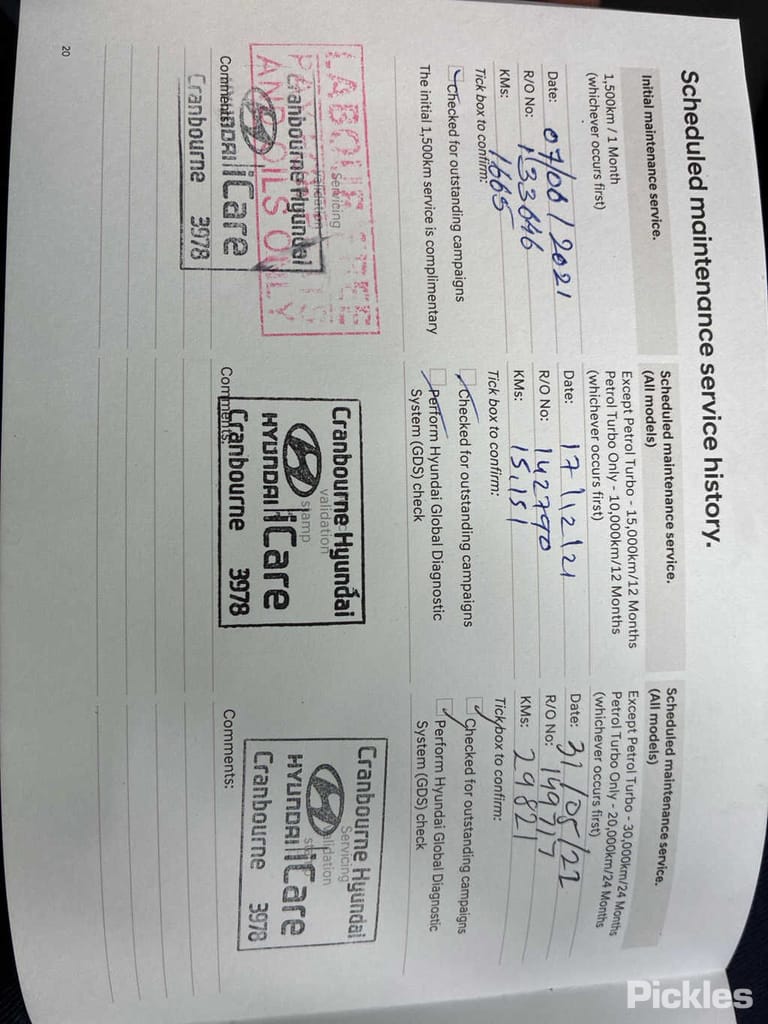 Scheduled maintenance service history.
Initial maintenance service.
1,500km / 1 Month
(whichever occurs first)
Date: 07/06/2021
R/O No: 133646
KMs: 1665
Tick box to confirm:
Checked for outstanding campaigns
The initial 1,500km service is complimentary
LABOUR FREE
PAY PARTS
AND OILS ONLY
Servicing
validation
Cranbourne Hyundai
HYUNDAI iCare
Cranbourne 3978
Comments:
Scheduled maintenance service.
(All models)
Except Petrol Turbo - 15,000km/12 Months
Petrol Turbo Only - 10,000km/12 Months
(whichever occurs first)
Date: 17/12/21
R/O No: 142790
KMs: 15,151
Tick box to confirm:
Checked for outstanding campaigns
Perform Hyundai Global Diagnostic
System (GDS) check
Cranbourne Hyundai
validation
stamp
HYUNDAI iCare
Cranbourne 3978
Comments:
Scheduled maintenance service.
(All models)
Except Petrol Turbo - 30,000km/24 Months
Petrol Turbo Only - 20,000km/24 Months
(whichever occurs first)
Date: 31/05/22
R/O No: 149717
KMs: 29821
Tick box to confirm:
Checked for outstanding campaigns
Perform Hyundai Global Diagnostic
System (GDS) check
Cranbourne Hyundai
Servicing
validation
HYUNDAI iCare
Cranbourne 3978
Comments:
20
Pickles